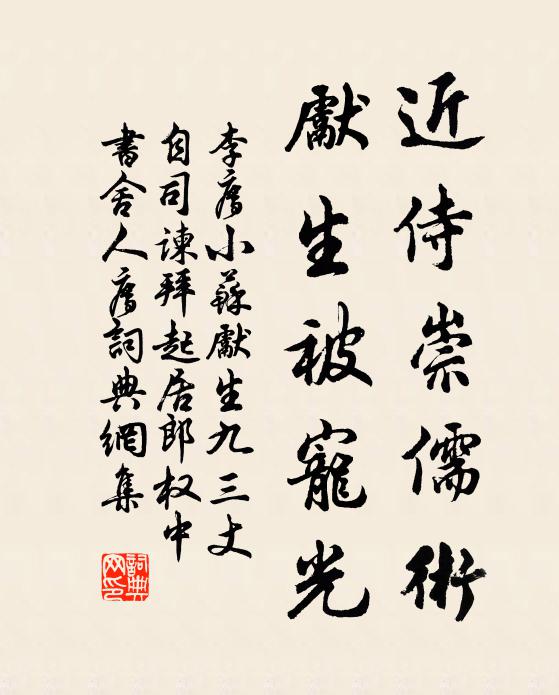 近侍崇儒術
獻生被寵光
李廌小蘇獻生九三丈
自司諫拜起居郎权中
書舍人廌詞典網集
詞典網印